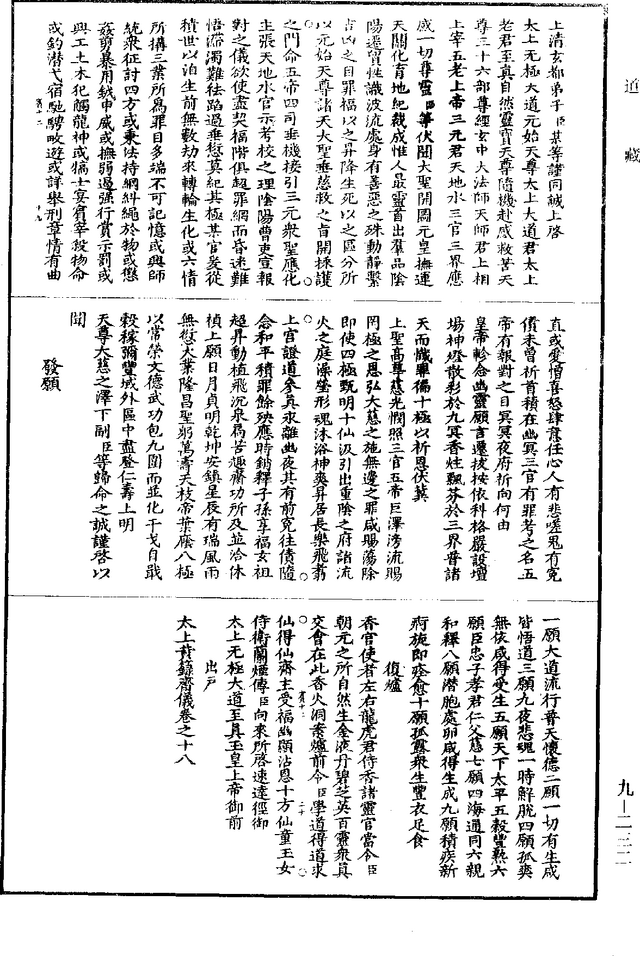 道藏
上清玄都弟子臣某等謹同誠上啓
太上無極大道元始天尊太上大道君太上
老君至真自然靈寶天尊隨機赴感救苦天
尊三十六部尊經玄中大法師天師君上相
上宰五老上帝三元君天地水三官三界應
感一切尊靈臣等伏聞大聖開圖元皇撫運
天關化育地紀裁成惟人最靈首出羣品陰
陽遷貿性識波流處身有善惡之殊動靜繫
吉凶之目罪福以之昇降生死以之區分所
以元始天尊諸天大聖垂慈救之旨開拯護
之門命五帝四司垂機接引三元衆聖應化
主張天地水官示考校之理陰陽曹吏宣報
對之儀欲使盡契福階俱超罪網而昏迷難
悟滯濁難袪蹈過乖愆莫紀其極某官爰從
積世以洎生前無數劫來轉輪生化或六情
所搆三業所爲罪目多端不可記憶或興師
統衆征討四方或秉法持綱糾繩於物或懲
姦剪暴用鉞申威或撫弱遏强行賞示罰或
興工土木犯觸龍神或犒士宴賓宰殺物命
或釣潛弋宿馳騁畋遊或詳舉刑章情有曲
直或愛憎喜怒肆意任心人有悲嗟鬼有寃
債未曾祈首積在幽冥三官有罪考之名五
帝有報對之目冥冥夜府祈向何由
皇帝軫念幽靈願言遷拔按依科格嚴設壇
場神燈散彩於九冥香炷飄芬於三界普諸
天而懺罪徧十極以祈恩伏冀
上聖高尊慈光憫照三官五帝巨澤滂流賜
罔極之恩弘大慈之施無邊之罪咸賜蕩除
即使四極甄明十仙汲引出重陰之府諸流
火之庭澡瑩形魂沐浴神爽昇居長樂飛翥
上宮證道參真永離幽夜其有前寃往債隨
念和平積罪餘殃應時銷釋子孫享福玄祖
超昇動植飛沉永爲苦趣齋功所及並洽休
禎上願日月貞明乾坤安鎮星辰有瑞風雨
無愆大業隆昌聖躬萬壽天枝帝葉廕八極
以常榮文德武功包九圍而並化干戈自戢
穀稼彌豐域外區中盡登仁壽上明
天尊大慈之澤下副臣等歸命之誠謹啓以
聞
發願
一願大道流行普天懷德二願一切有生咸
皆悟道三願九夜悲魂一時解脫四願孤爽
無依咸得受生五願天下太平五穀豐熟六
願臣忠子孝君仁父慈七願四海通同六親
和釋八願潛胞處卵咸得生成九願積疾新
痾旋即痊愈十願孤露衆生豐衣足食
復爐
香官使者左右龍虎君侍香諸靈官當令臣
朝元之所自然生金液丹碧芝英百靈衆真
交會在此香火洞案爐前令臣學道得道求
仙得仙齋主受福幽顯沾恩十方仙童玉女
侍衛蘭煙傳臣向來所啓速達徑御
太上無極大道至真玉皇上帝御前
出戶
太上黄籙齋儀卷之十八
九—二三二